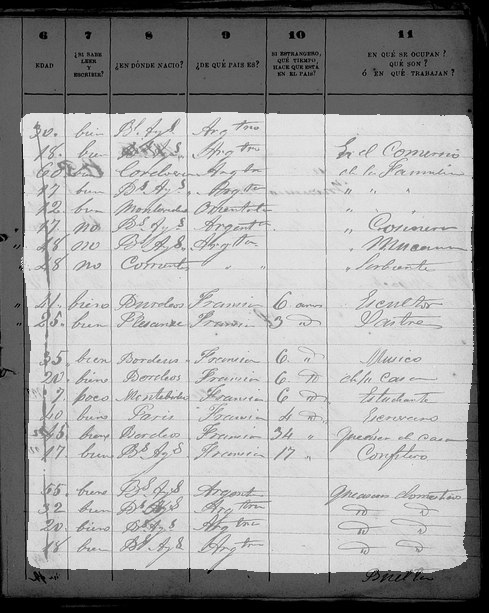 6 7 8 9 10 11
EDAD ¿SI SABE LEER Y ESCRIBIR? ¿EN DÓNDE NACIO? ¿DE QUÉ PAIS ES? SI ESTRANGERO, QUÉ TIEMPO, HACE QUE ESTÁ EN EL PAIS? EN QUÉ SE OCUPAN? QUÉ SON? Ó EN QUÉ TRABAJAN?
30. bien Bs Ays Argtno
18. bien Argtn En el Comercio
60 Cordova Argtn de la Familia
17 bien Bs Ays Argtn " " "
12 bien Montevideo Oriental
17 no Bs Ays Argent "
18 no Bs Ays Argtn " Mucama
28 no Corrientes " " " Sirbiente
21. bien Burdeos Francia 6 años Escultor
25. bien Francia 3 Sastre
35 bien Bordeus Francia 6 " Musico
20. bien Bordeos Francia 6 de su casa
9 poco Montebideo Francia 6 Estudiante
40 bien Paris Francia 4 Escribano
45 bien Bordeos Francia 34 " casa
17 bien Bs Ays Francia 17 " Confitero
55 bien Bs Ays Argent domestico
32 bien Bs Ays Argtn
20. bien Bs Ays Argtn
18 bien Bs Ays Argtn